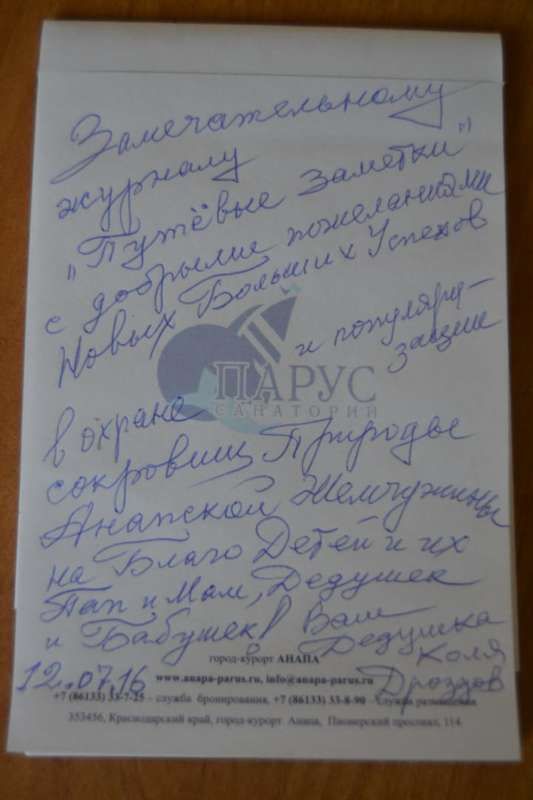 Замечательному
журналу
„Путёвые заметки"
с добрыми пожеланиями
Новых Больших Успехов
и популяри-
зации
ПАРУС
САНАТОРИЙ
в охране
сокровищ Природы
Анапской Жемчужины
на Благо Детей и их
Пап и Мам, Дедушек
и Бабушек! Ваш
Дедушка
Коля
Дроздов
12.07.16
город-курорт АНАПА
www.anapa-parus.ru, info@anapa-parus.ru
+7 (86133) 33-7-25 - служба бронирования, +7 (86133) 33-8-90 - служба размещения
353456, Краснодарский край, город-курорт Анапа, Пионерский проспект, 114